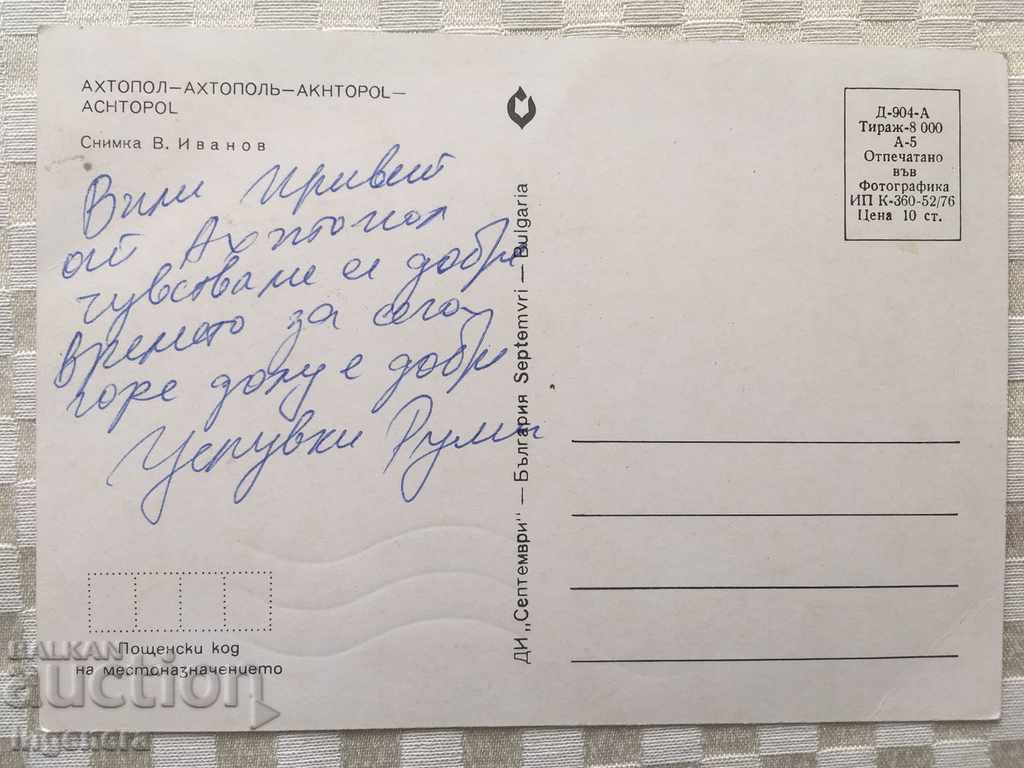 АХТОПОЛ—АХТОПОЛЬ—AKHTOPOL—
ACHTOPOL
Снимка В. Иванов
Вили привет
от Ахтопол
чувстваме се добре
времето за сега
горе долу е добре
Целувки Руми
Пощенски код
на местоназначението
ДИ „Септември" — България Septemvri — Bulgaria
Д-904-А
Тираж-8 000
А-5
Отпечатано
във
Фотографика
ИП К-360-52/76
Цена 10 ст.
BALKAN
auction
ingenera